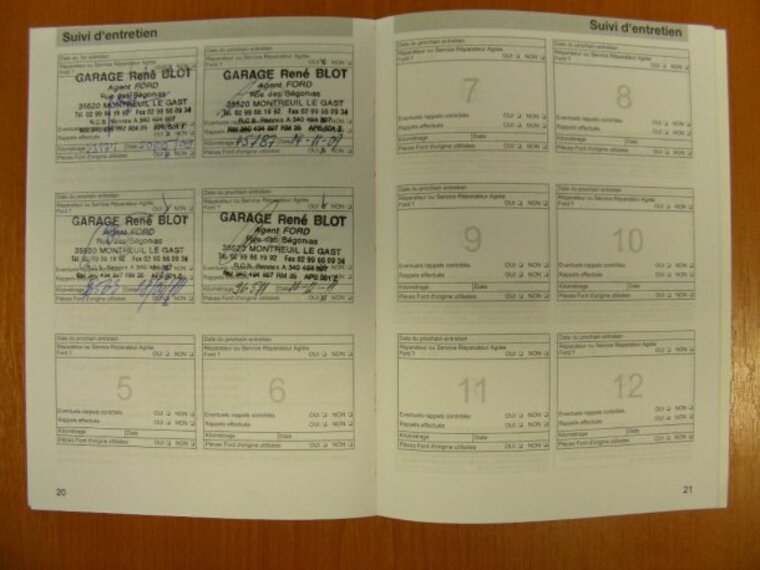 Suivi d'entretien
Date du 1er entretien
Réparateur ou Service Réparateur Agréé
Ford ? OUI NON
GARAGE René BLOT
Agent FORD
Rue des Bégonias
35520 MONTREUIL LE GAST
Tél. 02 99 66 19 92 Fax 02 99 66 09 34
R.C.S. Rennes A 340 494 697
Kilométrage Date
Pièces Ford d'origine utilisées
Date du prochain entretien
Réparateur ou Service Réparateur Agréé
Ford ? OUI NON
GARAGE René BLOT
Agent FORD
Rue des Bégonias
35520 MONTREUIL LE GAST
Tél. 02 99 66 19 92 Fax 02 99 66 09 34
R.C.S. Rennes A 340 494 697
Kilométrage Date
Pièces Ford d'origine utilisées
Date du prochain entretien
Réparateur ou Service Réparateur Agréé
Ford ? OUI NON
GARAGE René BLOT
Agent FORD
Rue des Bégonias
35520 MONTREUIL LE GAST
Tél. 02 99 66 19 92 Fax 02 99 66 09 34
Kilométrage Date
Pièces Ford d'origine utilisées
Date du prochain entretien
Réparateur ou Service Réparateur Agréé
Ford ? OUI NON
GARAGE René BLOT
Agent FORD
Rue des Bégonias
35520 MONTREUIL LE GAST
Tél. 02 99 66 19 92 Fax 02 99 66 09 34
Kilométrage Date
Pièces Ford d'origine utilisées
Date du prochain entretien
Réparateur ou Service Réparateur Agréé
Ford ? OUI NON
5
Eventuels rappels contrôlés OUI NON
Rappels effectués OUI NON
Kilométrage Date
Pièces Ford d'origine utilisées OUI NON
Date du prochain entretien
Réparateur ou Service Réparateur Agréé
Ford ? OUI NON
6
Eventuels rappels contrôlés OUI NON
Rappels effectués OUI NON
Kilométrage Date
Pièces Ford d'origine utilisées OUI NON
20
Suivi d'entretien
Date du prochain entretien
Réparateur ou Service Réparateur Agréé
Ford ? OUI NON
7
Eventuels rappels contrôlés OUI NON
Rappels effectués OUI NON
Kilométrage Date
Pièces Ford d'origine utilisées OUI NON
Date du prochain entretien
Réparateur ou Service Réparateur Agréé
Ford ? OUI NON
8
Eventuels rappels contrôlés OUI NON
Rappels effectués OUI NON
Kilométrage Date
Pièces Ford d'origine utilisées OUI NON
Date du prochain entretien
Réparateur ou Service Réparateur Agréé
Ford ? OUI NON
9
Eventuels rappels contrôlés OUI NON
Rappels effectués OUI NON
Kilométrage Date
Pièces Ford d'origine utilisées OUI NON
Date du prochain entretien
Réparateur ou Service Réparateur Agréé
Ford ? OUI NON
10
Eventuels rappels contrôlés OUI NON
Rappels effectués OUI NON
Kilométrage Date
Pièces Ford d'origine utilisées OUI NON
Date du prochain entretien
Réparateur ou Service Réparateur Agréé
Ford ? OUI NON
11
Eventuels rappels contrôlés OUI NON
Rappels effectués OUI NON
Kilométrage Date
Pièces Ford d'origine utilisées OUI NON
Date du prochain entretien
Réparateur ou Service Réparateur Agréé
Ford ? OUI NON
12
Eventuels rappels contrôlés OUI NON
Rappels effectués OUI NON
Kilométrage Date
Pièces Ford d'origine utilisées OUI NON
21